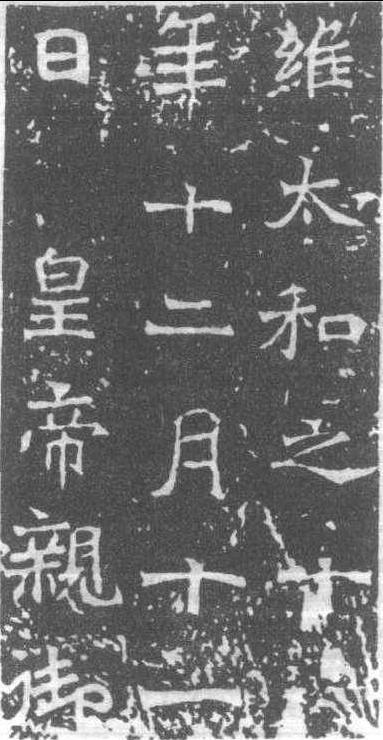 維太和之十八
年十二月十一
日 皇帝親御